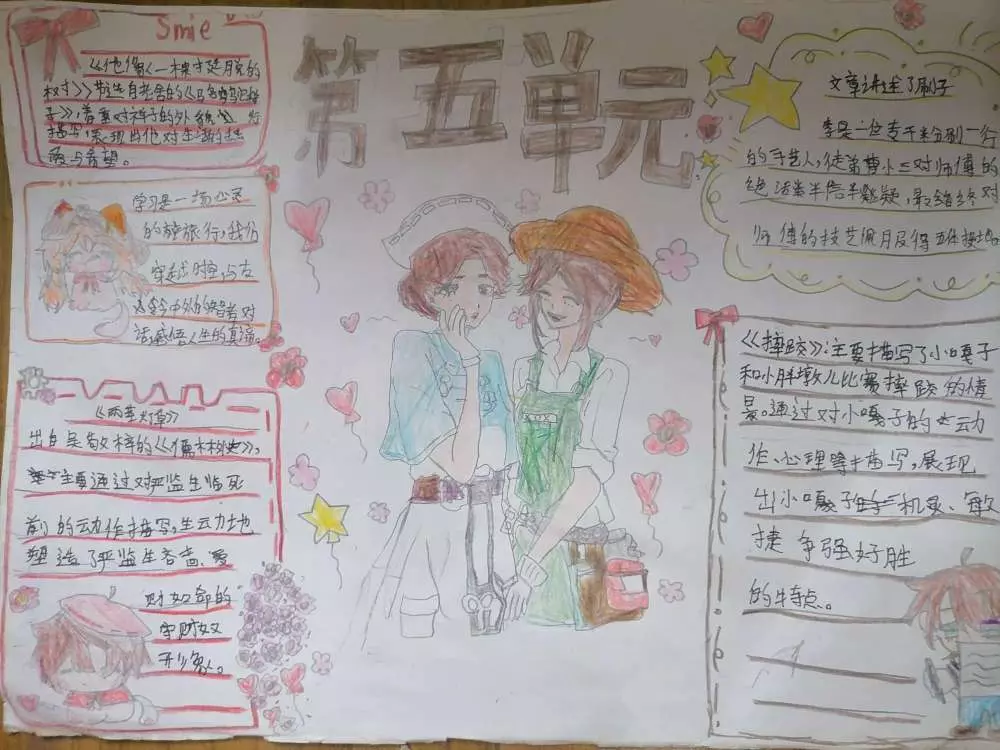 第五单元
Smie
《他像一棵挺脱的
树》节选自老舍的《骆驼祥
子》,着重对祥子的外貌进行
描写,表现出他对生活的热
爱与希望。
学习是一场心灵
的旅行,我们
穿越时空,与古
今中外的智者对
话,感悟人生的真谛。
《两茎灯草》
出自吴敬梓的《儒林外史》,
主要通过对严监生临死
前的动作描写,生动地
塑造了严监生吝啬、爱
财如命的
守财奴
形象。
文章讲述了刷子
李是一位专干粉刷一行
的手艺人,徒弟曹小三对师傅的
绝活半信半疑,最终对
师傅的技艺佩服得五体投地。
《摔跤》:主要描写了小嘎子
和小胖墩儿比赛摔跤的情
景。通过对小嘎子的动
作、心理等描写,展现
出小嘎子机灵、敏
捷 争强好胜
的特点。